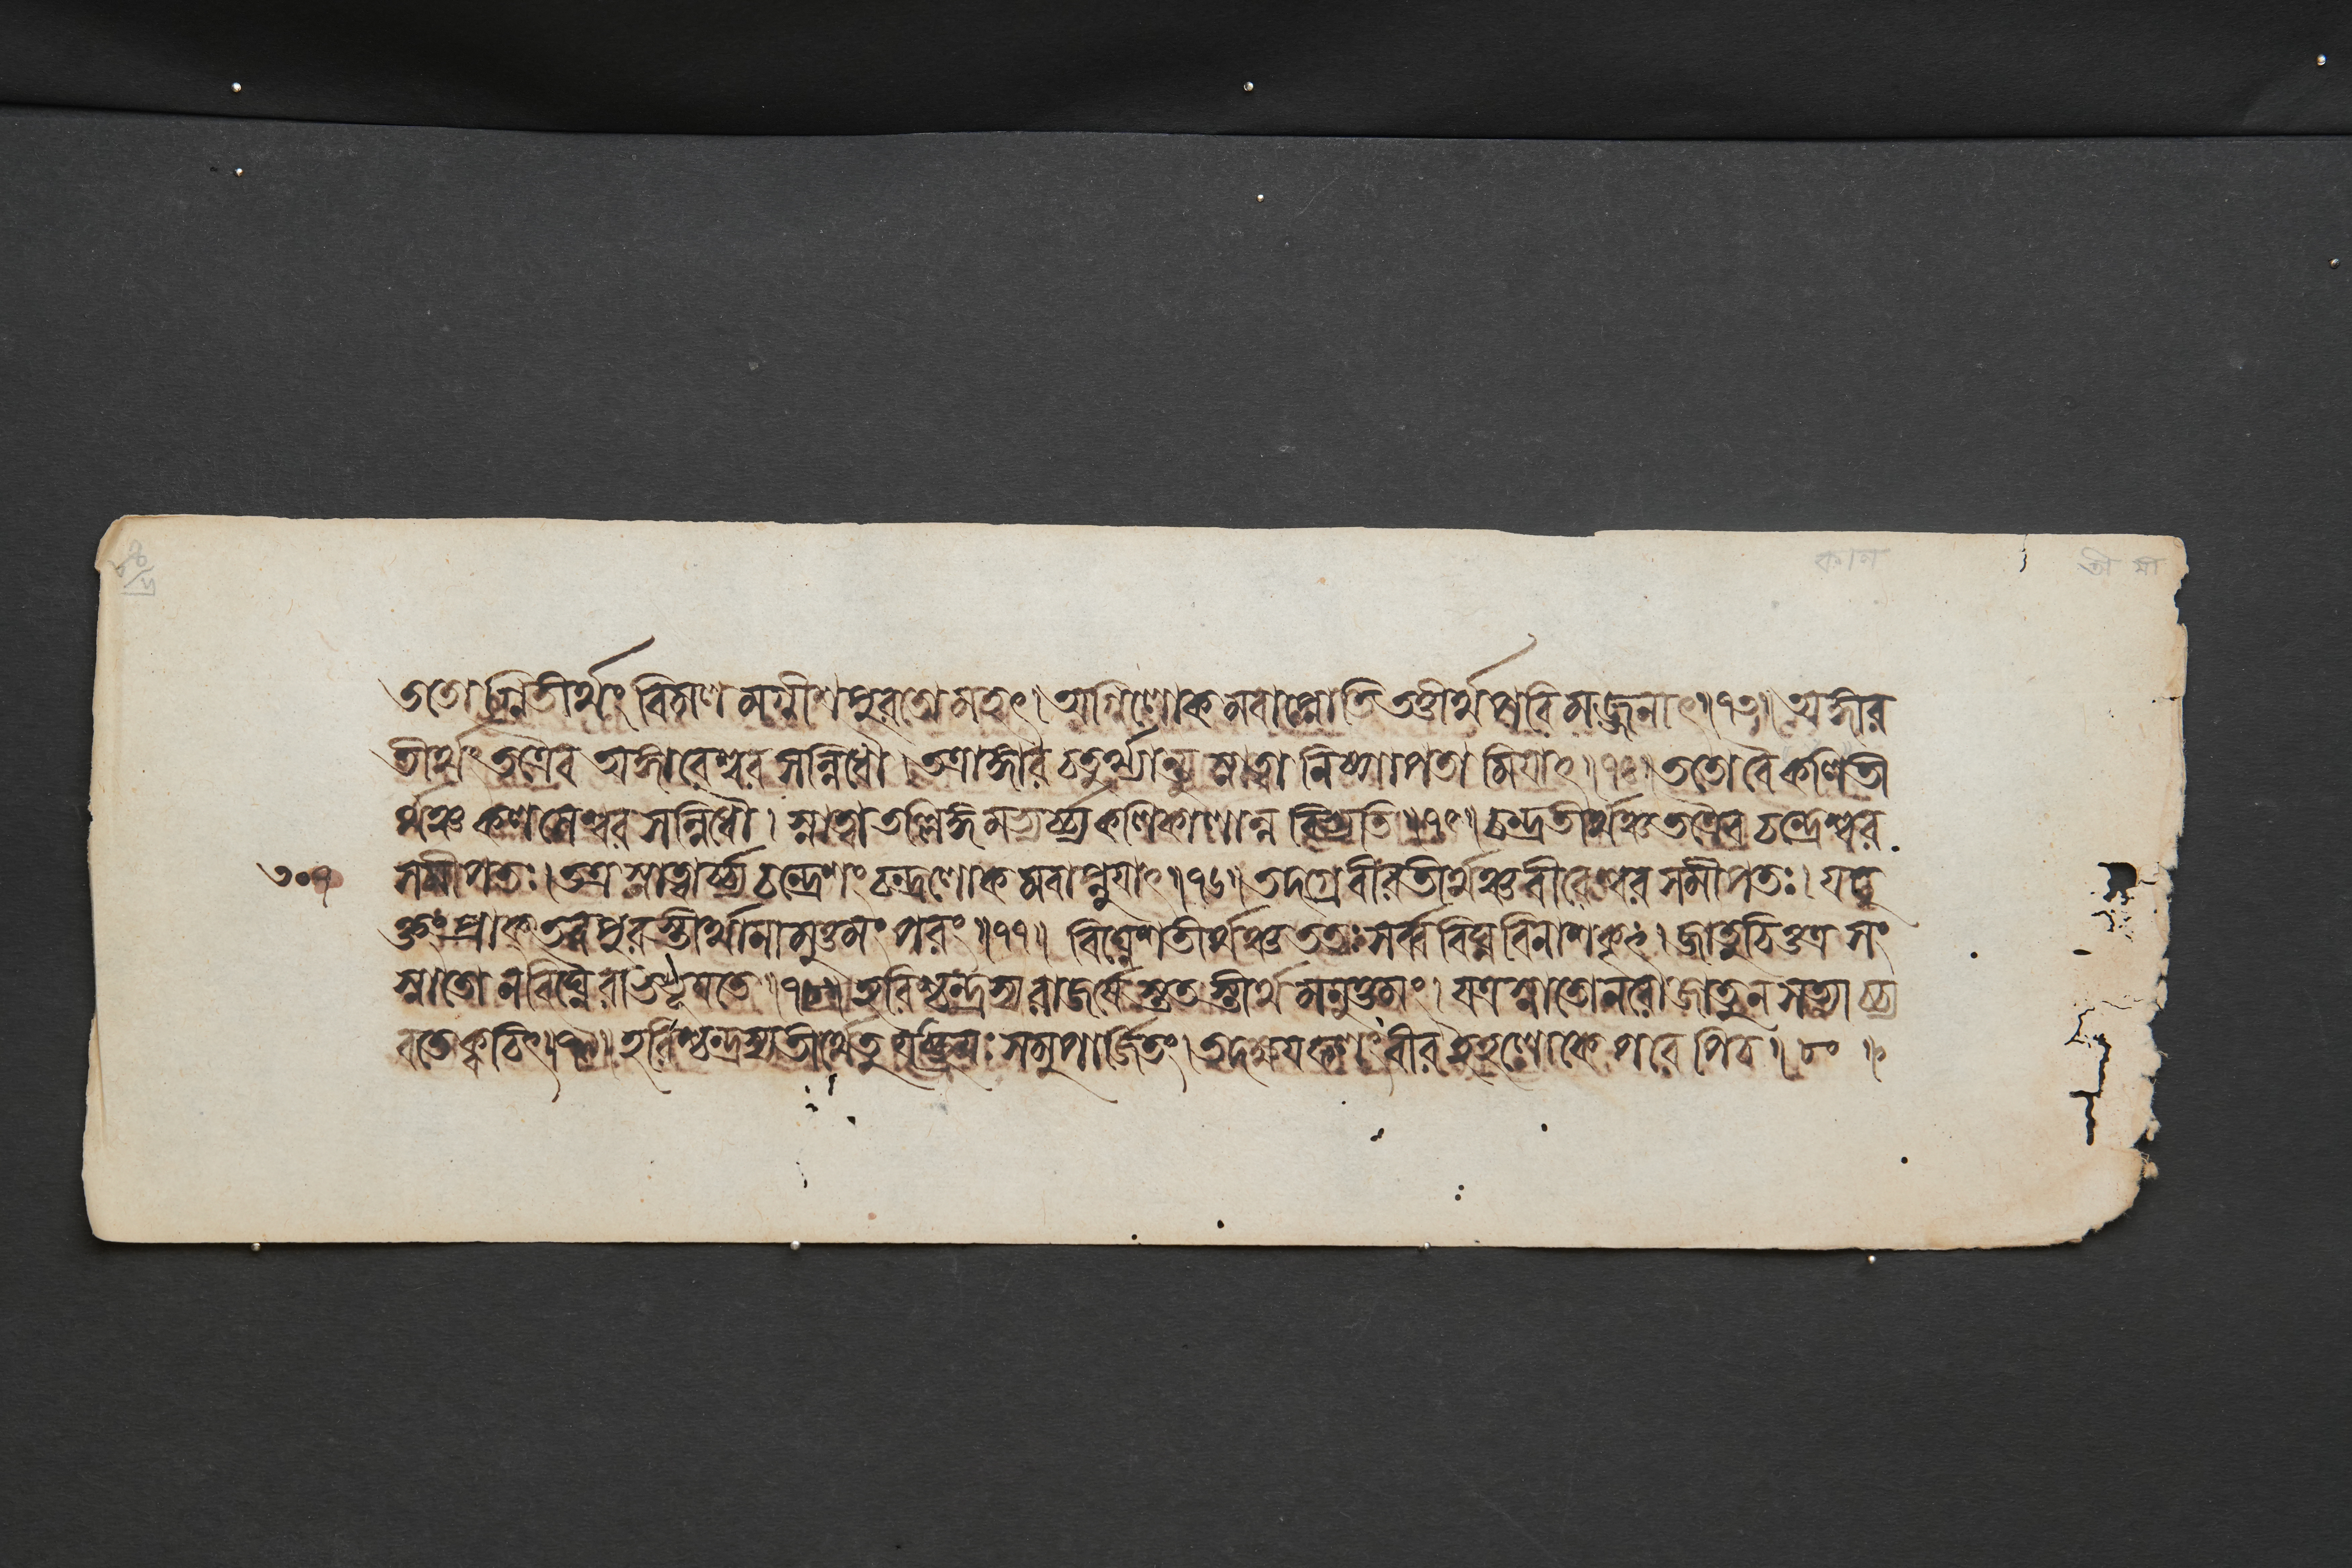 ততোগ্নিতীর্থং বিমলমগ্নীশপুরতো মহৎ। অগ্নিলোকমবাপ্নোতি তত্তীর্থপরিমজ্জনাৎ॥৭৩॥ অঙ্গার
তীর্থং তত্রৈব অঙ্গারেশ্বরসন্নিধৌ। তত্রাঙ্গারচতুর্থ্যান্তু স্নাত্বা নিষ্পাপতামিয়াৎ॥৭৪॥ ততো বৈ কলিতী
র্থঞ্চ কলসেশ্বরসন্নিধৌ। স্নাত্বা তল্লিঙ্গমভ্যর্চ্চ্য কলিকালান্ন বিভ্যতি॥৭৫॥ চন্দ্রতীর্থঞ্চ তত্রৈব চন্দ্রেশ্বর
৩০৭ সমীপতঃ। তত্র স্নাত্বার্চ্চ্য চন্দ্রেশং চন্দ্রলোকমবাপ্নুয়াৎ॥৭৬॥ তদগ্রে বীরতীর্থঞ্চ বীরেশ্বরসমীপতঃ। যদু
ক্তং প্রাক্ তব পুরস্তীর্থানামুত্তমং পরং॥৭৭॥ বিঘ্নেশতীর্থঞ্চ ততঃ সর্ব্ববিঘ্নবিনাশকৃৎ। জাতুচিত্তত্র সং
স্নাতো ন বিঘ্নৈরভিভূয়তে॥৭৮॥ হরিশ্চন্দ্রস্য রাজর্ষেস্ততস্তীর্থমনুত্তমং। যত্র স্নাতো নরো জাতু ন সত্যাচ্চ্য
বতে ক্বচিৎ॥৭৯॥ হরিশ্চন্দ্রস্য তীর্থে তু যচ্ছ্রেয়ঃ সমুপার্জিতং। তদক্ষয়ফলং বীর ইহলোকে পরেপি চ॥৮০॥